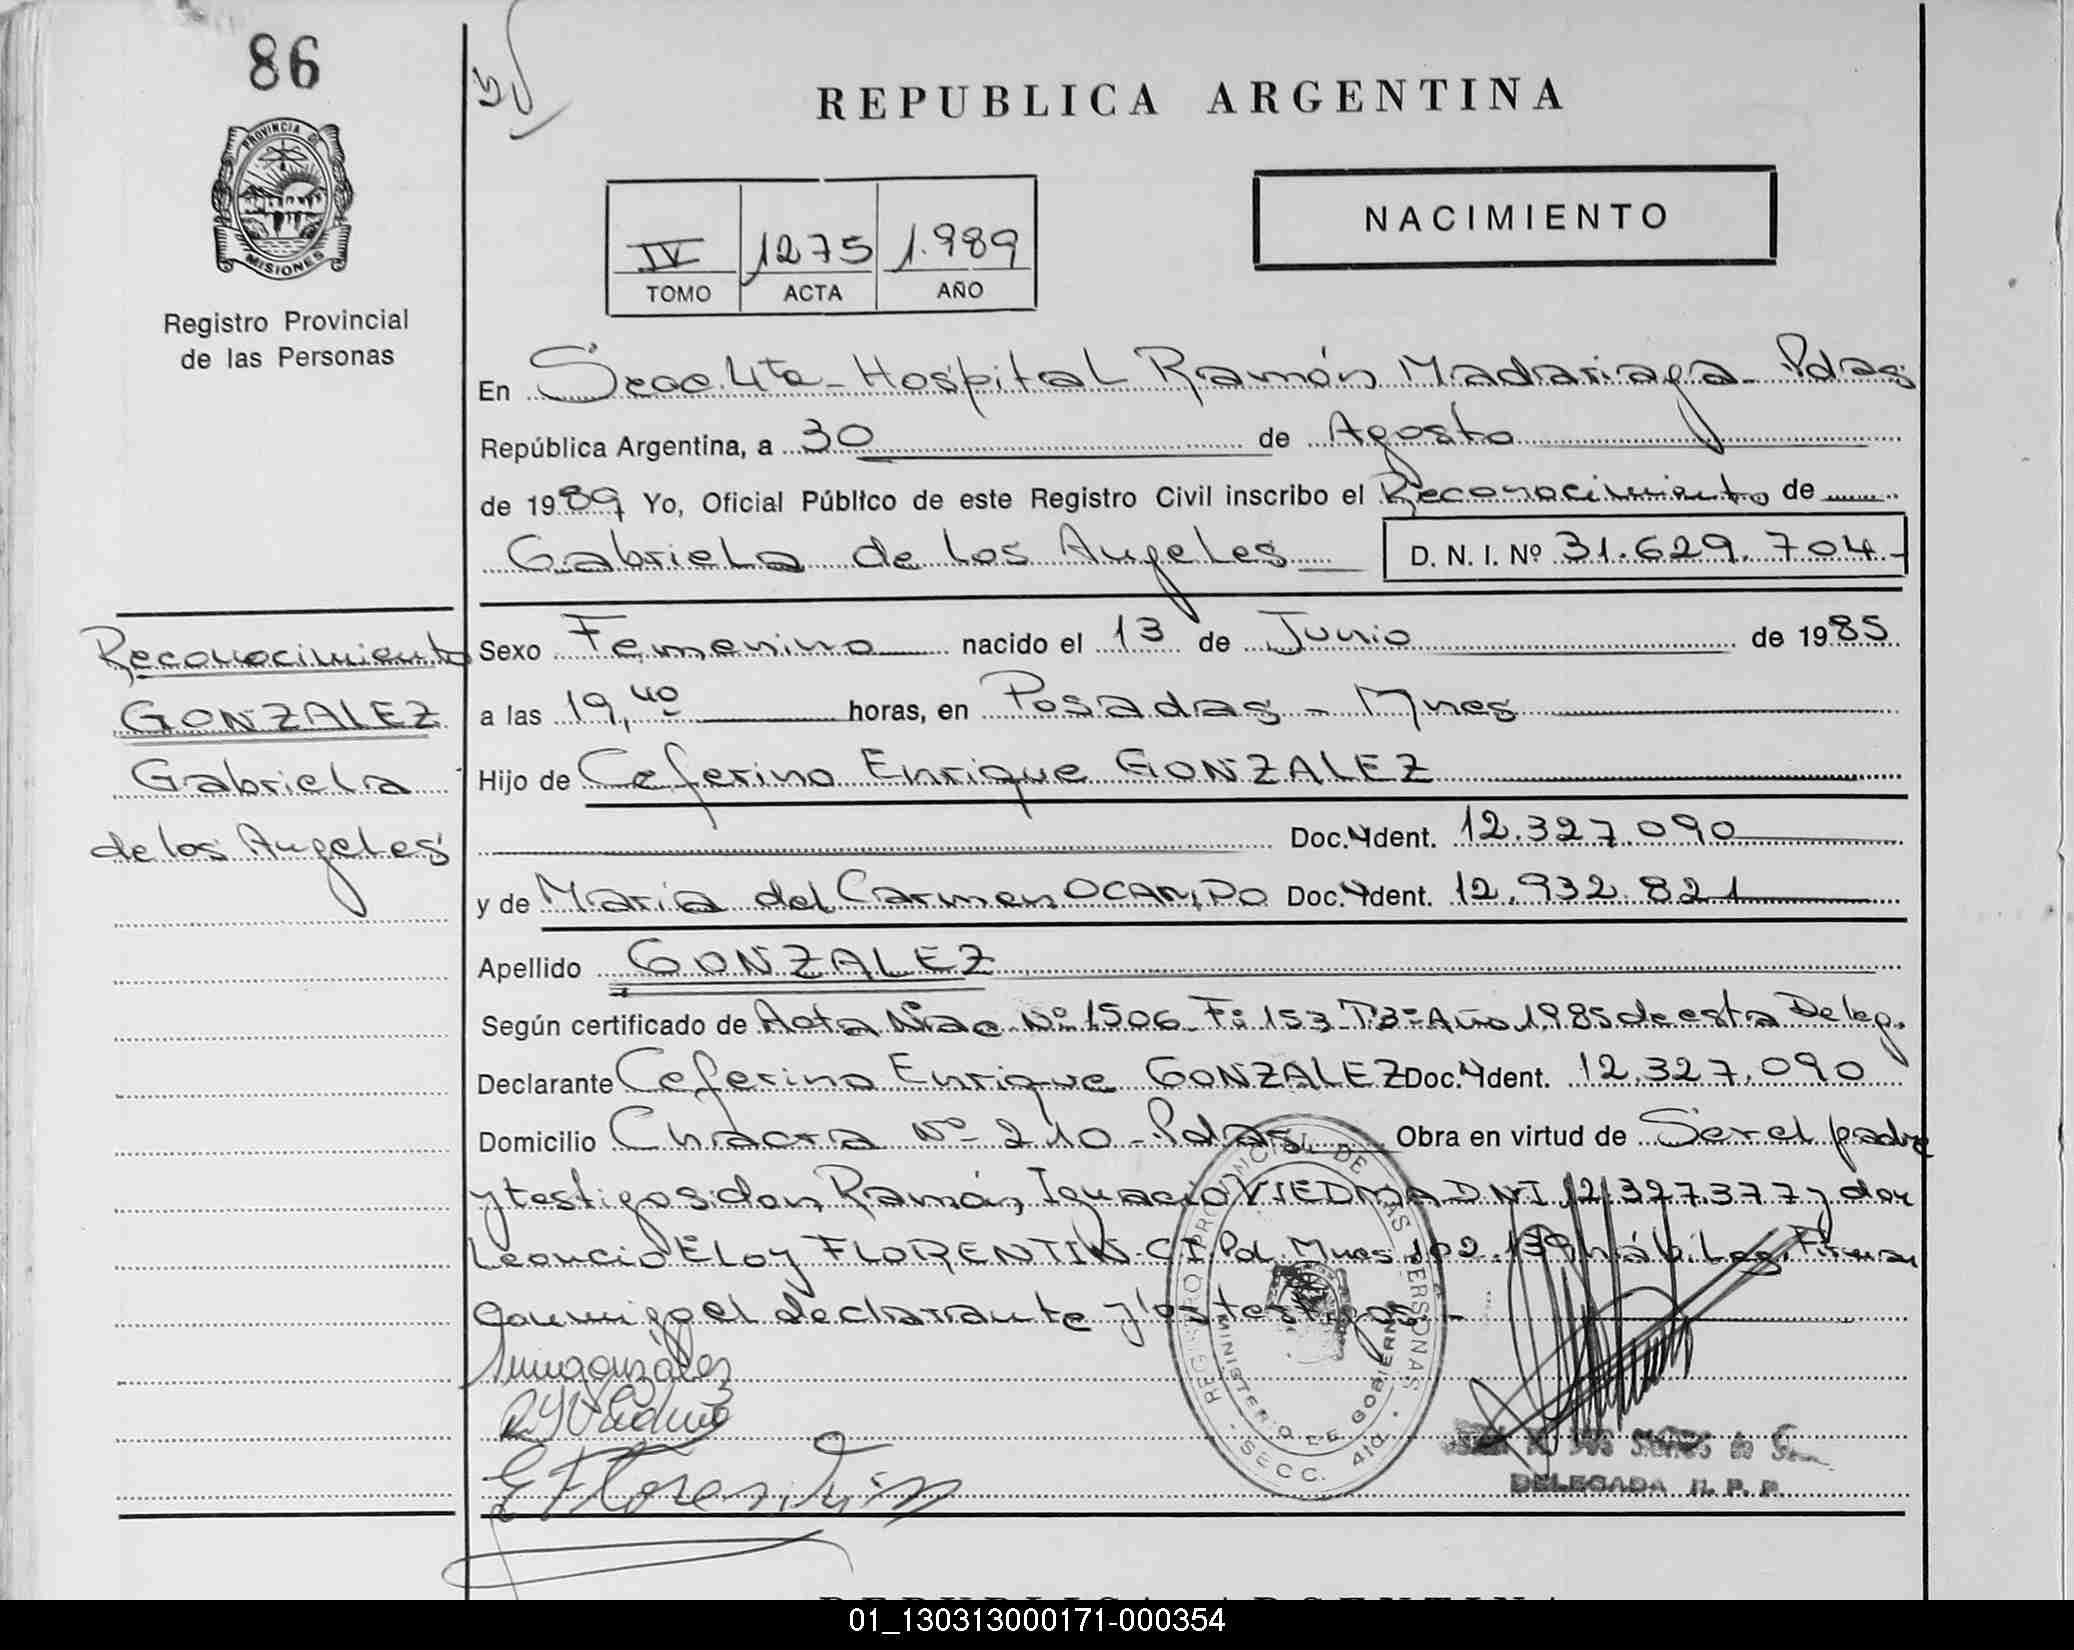 86
PROVINCIA DE
MISIONES
Registro Provincial
de las Personas
REPUBLICA ARGENTINA
NACIMIENTO
IV 1275 1.989
TOMO ACTA AÑO
En Secc. 4ta - Hospital Ramón Madariaga - Pdas
República Argentina, a 30 de Agosto
de 1989 Yo, Oficial Público de este Registro Civil inscribo el Reconocimiento de
Gabriela de los Angeles D. N. I. Nº 31.629.704.-
Reconocimiento
GONZALEZ
Gabriela
de los Angeles
Sexo Femenino nacido el 13 de Junio de 1985
a las 19,40 horas, en Posadas - Mnes
Hijo de Ceferino Enrique GONZALEZ
Doc. Ident. 12.327.090
y de Maria del Carmen OCAMPO Doc. Ident. 12.932.821
Apellido GONZALEZ
Según certificado de Acta Nac Nº 1506 Fº 153 Tº 3º Año 1985 de esta Deleg.
Declarante Ceferino Enrique GONZALEZ Doc. Ident. 12.327.090
Domicilio Chacra Nº 210 - Pdas Obra en virtud de Ser el padre
y testigos don Ramón Ignacio VIEDMA DNI 12.327.377 y don
Leoncio Eloy FLORENTIN C.I. Pol. Mnes 102.139 hábiles. Firman
conmigo el declarante y los testigos.-
REGISTRO PROVINCIAL DE LAS PERSONAS
MINISTERIO DE GOBIERNO
- SECC. 4ta. -
E Florentin
DELEGADA R. P. P.
REPUBLICA ARGENTINA
01_130313000171-000354